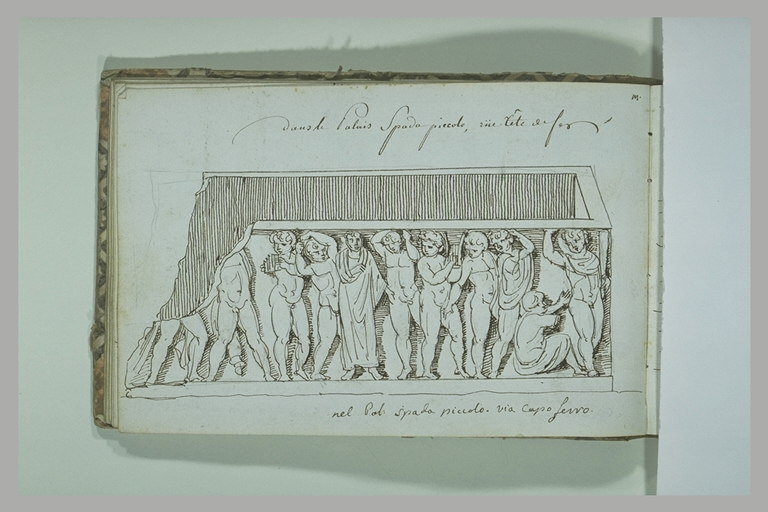 m.
dans le Palais Spada piccolo, rüe Tête de fer
nel Pal. Spada piccolo. via Capo ferro.